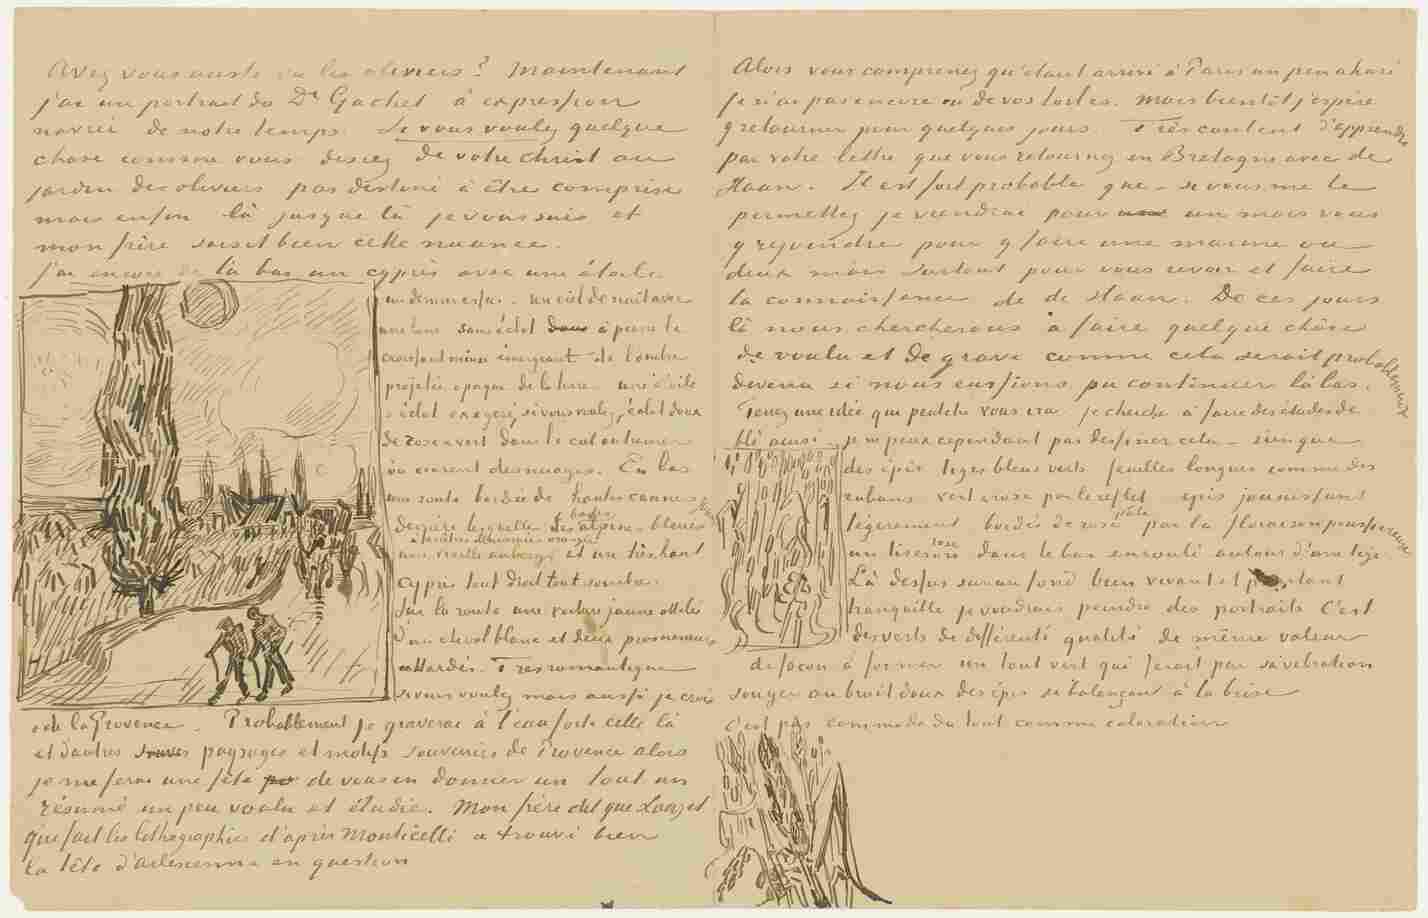 Avez vous aussi vu les oliviers? Maintenant
j'ai un portrait du Dr Gachet à expression
navrée de notre temps. Si vous voulez quelque
chose comme vous disiez de votre Christ au
jardin des oliviers pas destiné à être compris
mais enfin là jusque là je vous suis et
mon frère saisit bien cette nuance.
J'ai encore de là bas un cyprès avec une étoile
un dernier essai - un ciel de nuit avec
une lune sans éclat dans à peine le
croissant mince émergeant de l'ombre
projetée opaque de la terre - une étoile
à éclat exagéré, si vous voulez, éclat doux
de rose & vert dans le ciel outremer
où courent des nuages. En bas
une route bordée de hautes cannes jaunes
derrière lesquelles les basses alpines bleues
une vieille auberge à fenêtres illuminées orangée et un très haut
cyprès tout droit tout sombre.
Sur la route une voiture jaune attelée
d'un cheval blanc et deux promeneurs
attardés. Très romantique
si vous voulez mais aussi je crois
de la Provence. Probablement je graverai à l'eau forte celle là
et d'autres paysages et motifs souvenirs de Provence alors
je me ferai une fête de vous en donner un tout un
résumé un peu voulu et étudié. Mon frère dit que Lauzet
qui fait les lithographies d'après Monticelli a trouvé bien
la tête d'arlésienne en question
Alors vous comprenez qu'étant arrivé à Paris un peu ahuri
je n'ai pas encore vu de vos toiles. Mais bientôt j'espère
y retourner pour quelques jours. Très content d'apprendre
par votre lettre que vous retournez en Bretagne avec de
Haan. Il est fort probable que - si vous me le
permettez je viendrai pour un mois vous
y rejoindre pour y faire une marine ou
deux mais surtout pour vous revoir et faire
la connaissance de de Haan. De ces jours
là nous chercherons à faire quelque chose
de voulu et de grave comme cela serait probablement
devenu si nous eussions pu continuer là bas.
Tenez une idée qui peutetre vous ira je cherche à faire des études de
blé ainsi je ne peux cependant pas dessiner cela - rien que
des épis tiges bleus verts feuilles longues comme des
rubans vert & rose par le reflet épis jaunissant
légèrement bordés de rose pâle par la floraison poussiéreuse
un liseron rose dans le bas enroulé autour d'une tige.
Là dessus sur un fond bien vivant et pourtant
tranquille je voudrais peindre des portraits C'est
des verts de différente qualité de même valeur
de façon à former un tout vert qui ferait par sa vibration
songer au bruit doux des épis se balançant à la brise
c'est pas commode du tout comme coloration